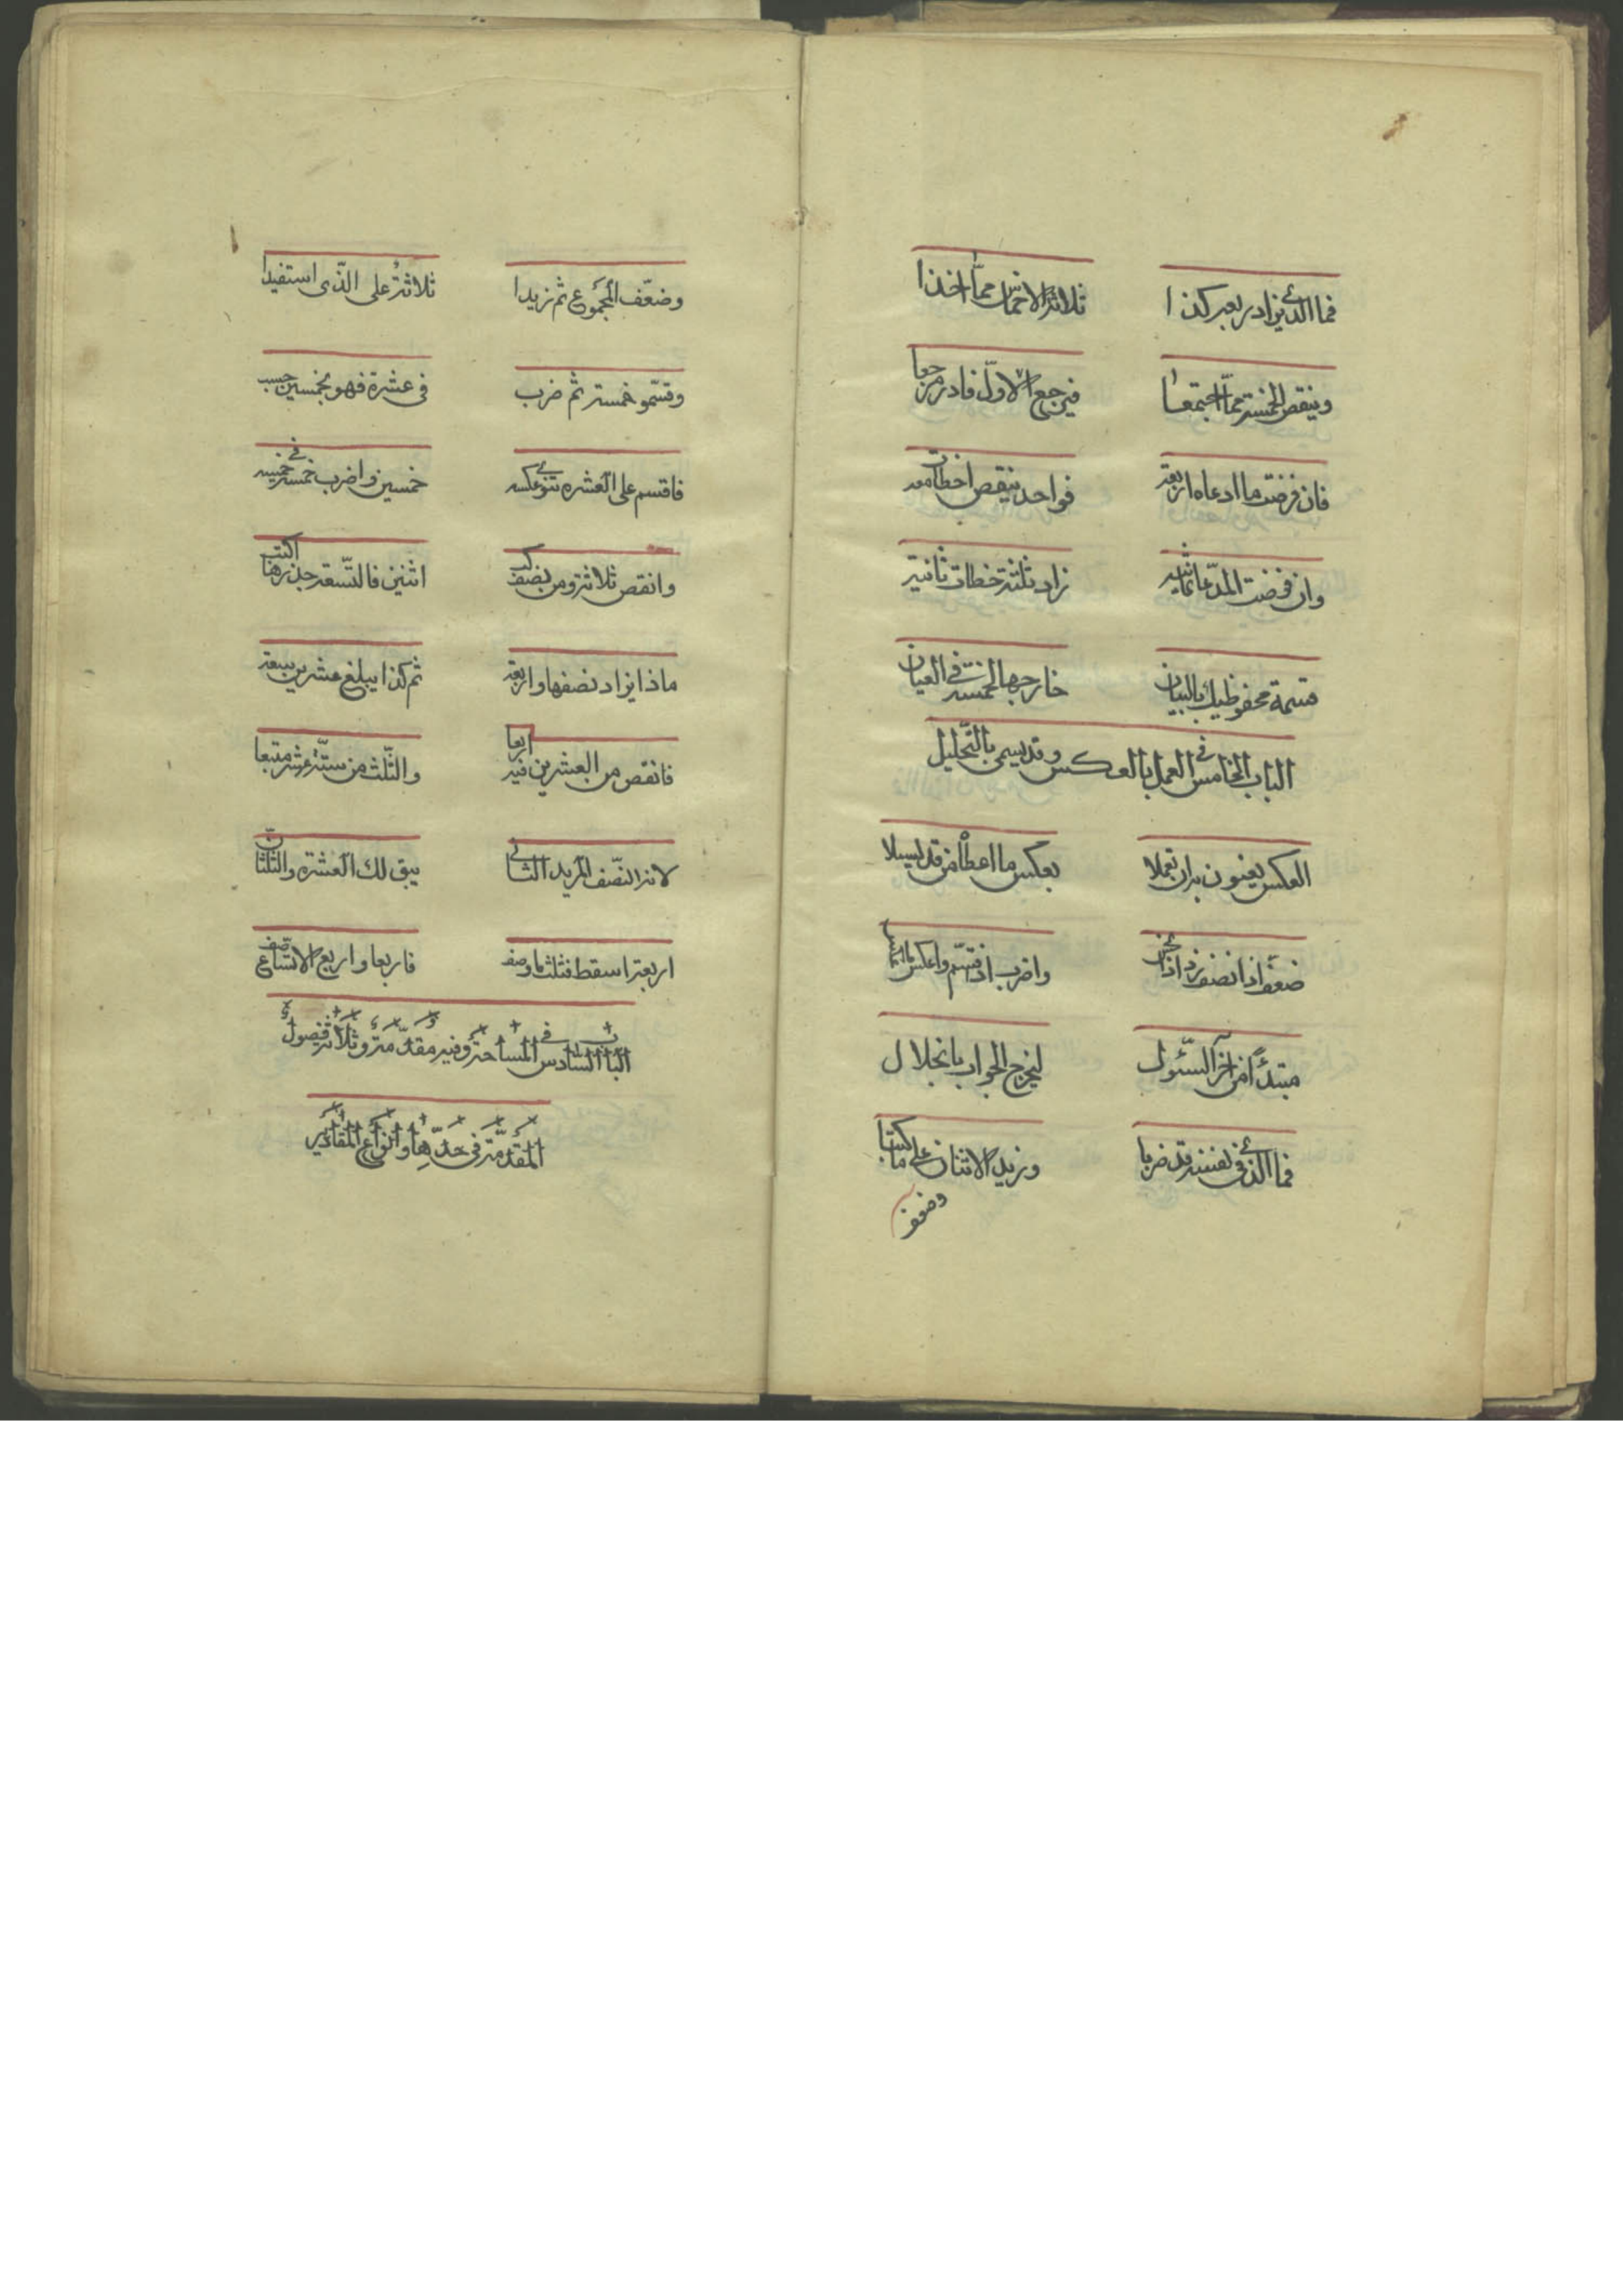 فما الذي زاد ربعه كذا ثلاثة الاخماس مما اخذا
وينقص الخمسة مما اجتمعا فيرجع الاول فادر مرجعا
فان فرضت ما ادعاه اربعة فواحد ينقص اخطأت معه
وان فرضت المدعا ثمانية زاد ثلثة خطات ثانية
قسمة محفوظيك بالبيان خارجها الخمسة في العيان
الباب الخامس في العمل بالعكس وقد يسمى بالتحليل
العكس يعنون به ان تعملا بعكس ما اعطا من قد سيلا
ضعف اذا نصف زد اذا واضرب اذ قسم واعكس
مبتدئا من اخر السئول ليخرج الجواب بانحلال
فما الذي في نفسه قد ضربا وزيد الاثنان على ما كتبا
وضعف
وضعف المجموع ثم زيدا ثلاثة على الذي استفيدا
وقسمو خمسة ثم ضرب في عشرة فهو بخمسين حسب
فاقسم على العشره خمسين واضرب خمسة في خمسه
وانقص ثلاثة ومن نصف اثنين فالتسعة جذرها اكتب
ماذا يزاد نصفها واربعة ثم كذا يبلغ عشرين بسعة
فانقص من العشرين فيه اربعا والثلث من ستة عشر متبعا
لانه النصف المزيد الثاني يبق لك العشره والثلثان
اربعة اسقط فثلثها وصف فاربعا واربع الاتساع صف
الباب السادس في المساحة وفيه مقدمة وثلاثة فصول
المقدمة في حدها وانواع المقادير